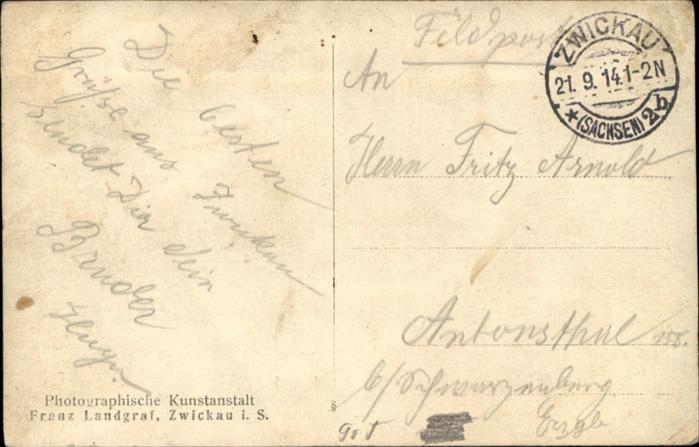 Die besten
Grüße aus Zwickau
sendet Dir dein
Bruder
Photographische Kunstanstalt
Franz Landgraf, Zwickau i. S.
Feldpost
ZWICKAU
21. 9. 14.1-2N
* (SACHSEN) 2b
An
Herrn Fritz Arnold
Antonsthal
b/Schwarzenberg
Erzgb
§